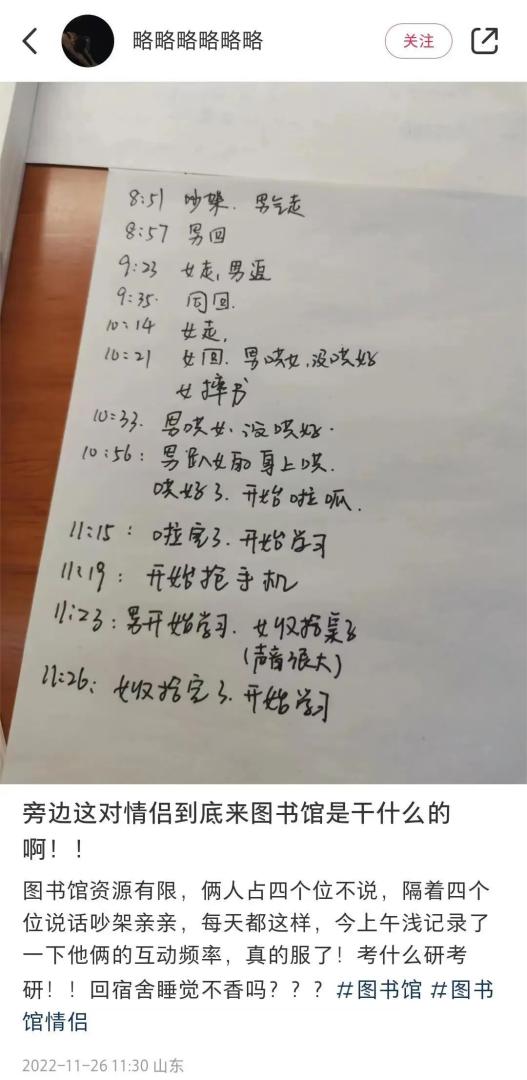 略略略略略略
关注
8:51 吵架. 男气走
8:57 男回
9:23 女走,男追
9:35. 同回.
10:14 女走,
10:21 女回. 男哄女,没哄好
女摔书
10:33. 男哄女、没哄好.
10:56: 男趴女的身上哄.
哄好了. 开始啦呱.
11:15: 啦完了. 开始学习
11:19: 开始抢手机
11:23: 男开始学习. 女收拾桌子
(声音很大)
11:26: 女收拾完了. 开始学习
旁边这对情侣到底来图书馆是干什么的
啊！！
图书馆资源有限，俩人占四个位不说，隔着四个
位说话吵架亲亲，每天都这样，今上午浅记录了
一下他俩的互动频率，真的服了！考什么研考
研！！回宿舍睡觉不香吗？？？#图书馆 #图书
馆情侣
2022-11-26 11:30 山东